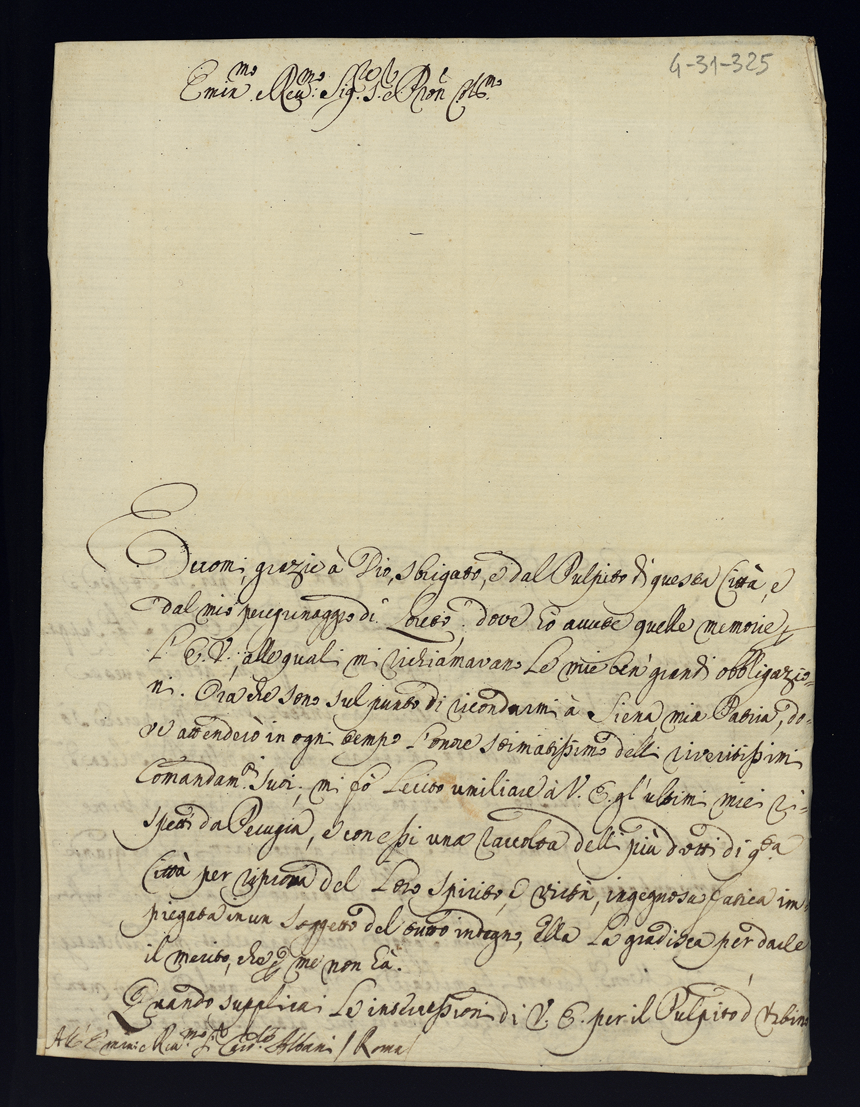 4-31-325
Emin.mo e Rev.mo Sig.re e Pron Col.mo
Eccomi, grazie à Dio, sbrigato, e dal Pulpito di questa Città, e
dal mio peregrinaggio di Loreto; dove hò avute quelle memorie
E. V., alle quali mi richiamavano le mie ben grandi obbligazio-
ni. Ora che sono sul punto di ricondurmi à Siena mia Patria, do-
ve attenderò in ogni tempo l'onore stimatissimo delli riveritissimi
Comandam.ti suoi; mi fò lecito umiliare à V. E. gl'ultimi miei ri-
spetti da Perugia, e con essi una raccolta delli più dotti di q.sta
Città per riprova del loro spirito, e virtù, ingegnosa fatica im-
piegata in un soggetto del tutto indegno, Ella la gradisca per darle
il merito, che me non hà.
Quando supplicai le intercessioni di V. E. per il Pulpito d'Urbino
All' Emin: e Rev.mo Card.le Albani / Roma /